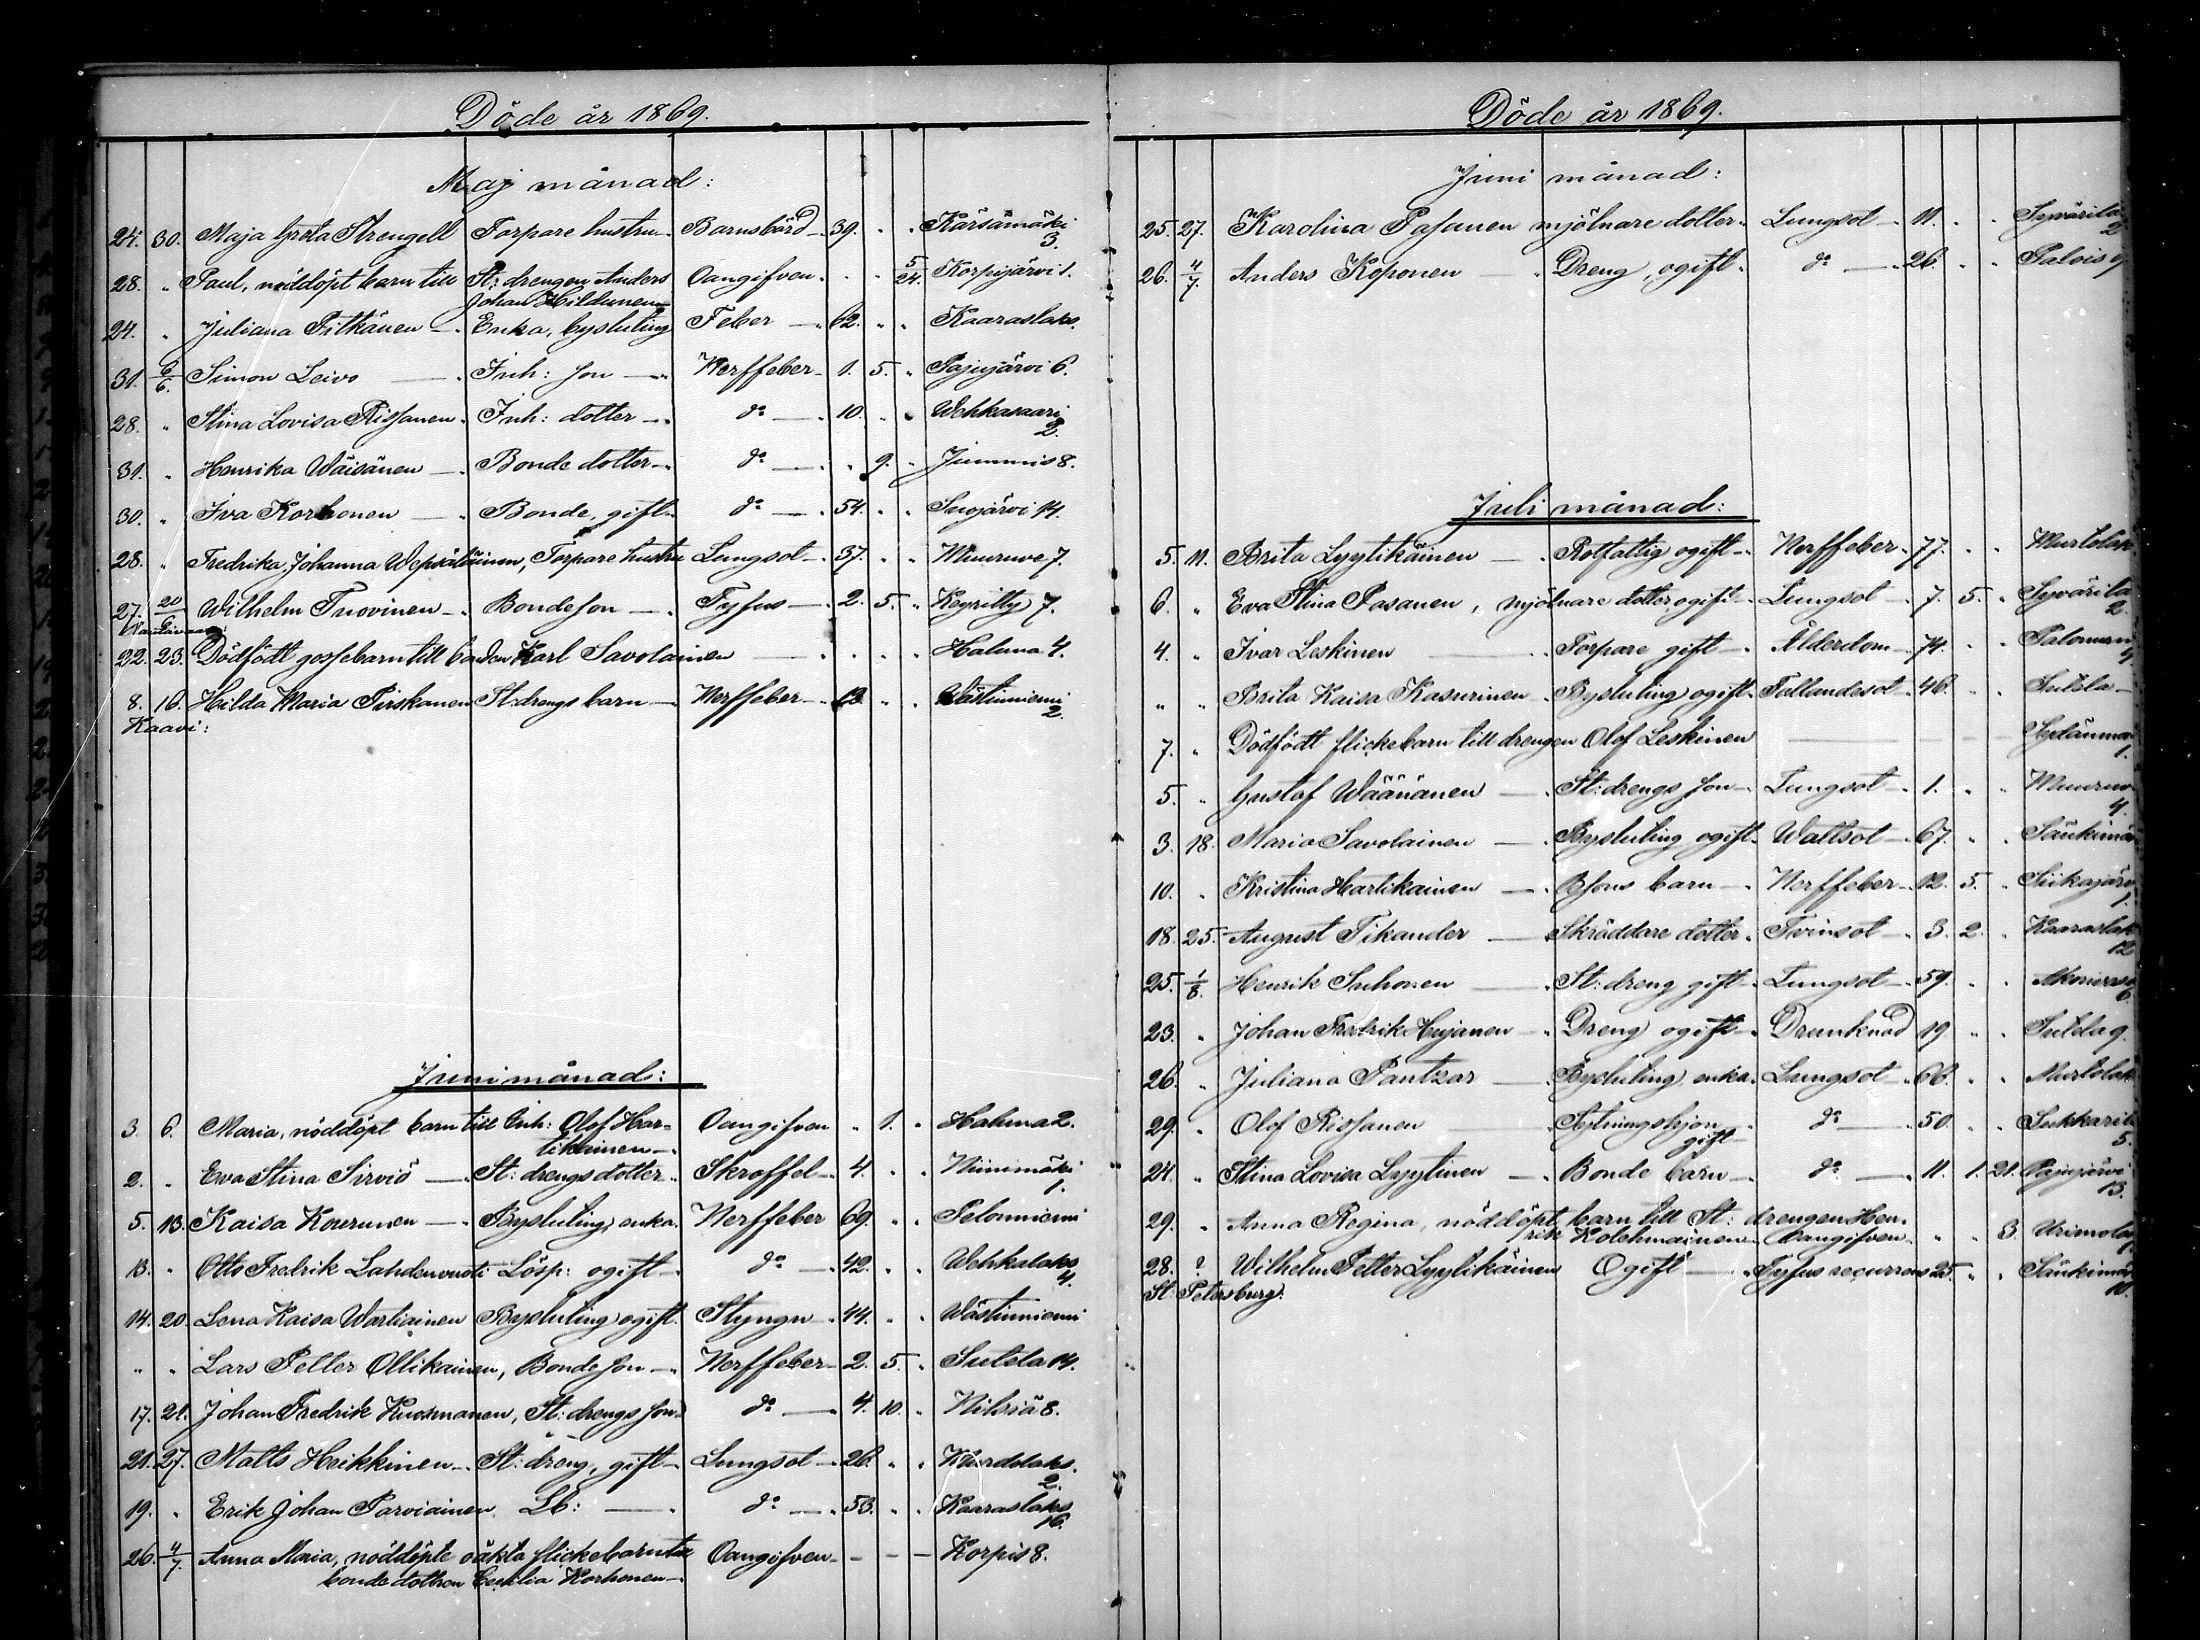 Döde år 1869.
Maj månad:
24. 30. Maja Greta Strengell Torpare hustru Barnsbörd 39. " " Kärsämäki 3.
28. " Paul, nöddöpt barn till St: drengen Anders Oangifven " " 5/24. Korpijärvi 1.
Johan Hildunen
24. " Juliana Pitkänen Enka, bysluting Feber 62. " " Kaaraslaks.
31. 6/6. Simon Leivo Inh: son Nerffeber 1. 5. " Pajujärvi 6.
28. " Stina Lovisa Rissanen Inh: dotter do 10. " " Wehkasaari 2.
31. " Henrika Wäisänen Bonde dotter do " 9. " Jummis 8.
30. " Iva Korhonen Bonde, gift do 54. " " Suojärvi 14.
28. " Fredrika Johanna Wepsäläinen, Torpare hustru Lungsot 37. " " Muuruve 7.
27. 20/6 Wilhelm Tuovinen Bondeson Tyfus 2. 5. " Keyritty 7.
22. 23. Dödfödt gossebarn till bonden Karl Savolainen " " " Haluna 4.
8. 16. Hilda Maria Pirskanen St: drengs barn Nerffeber " " Västinniemi 2.
Kaavi:
Juni månad:
3. 6. Maria, nöddöpt barn till Inh: Olof Har- Oangifven " 1. " Haluna 2.
tikainen
2. " Eva Stina Sirviö St: drengs dotter Skroffel 4. " " Niinimäki 1.
5. 13. Kaisa Kourunen Bysluting, enka. Nerffeber 69. " " Pelonniemi
13. " Otto Fredrik Lahdenvuoti Lösp: ogift do 42. " " Wehkalaks 4.
14. 20. Lena Kaisa Wartiainen Bysluting ogift Styngn 44. " " Västinniemi
" " Lars Petter Ollikainen, Bonde son Nerffeber 2. 5. " Sutela 14.
17. 21. Johan Fredrik Kuosmanen, St: drengs son do 4. 10. " Nilsiä 8.
21. 27. Matts Heikkinen St: dreng, gift Lungsot 26. " " 2.
19. " Erik Johan Parviainen Lb: do 53. " " Kaaraslaks 16.
26. 4/7. Anna Maria, nöddöpte oäkta flickebarn till Oangifven Korpis 8.
bondedottren Cecilia Korhonen
Döde år 1869.
Juni månad:
25. 27. Karolina Pasanen mjölnare dotter Lungsot 11. " " Syvärila 2
26. 4/7 Anders Koponen Dreng, ogift do 26. " " Palois 9
Juli månad:
5. 11. Brita Lyytikäinen Rotfattig ogift Nerffeber 77. " " Murtolak
6. " Eva Stina Pasanen, mjölnare dotter, ogift Lungsot 7. 5. " Syvärila 2.
4. " Ivar Leskinen Torpare gift Ålderdom 74. " "
" " Brita Kaisa Kasurinen Bysluting ogift Fallandesot 46. " " Sutela
7. " Dödfödt flickebarn till drengen Olof Leskinen Sydänma 1.
5. " Gustaf Wäänänen St: drengs son Lungsot 1. " " Muuruv 4.
3. 18. Maria Savolainen Bysluting ogift Wattsot 67. " " Sänkimä
10. " Kristina Hartikainen Bsons barn Nerffeber 12. 5. " Siikajärv 1.
18. 25. August Tikander Skräddare dotter Tvinsot 3. 2. " Kaaraslak 12
25. 1/8. Henrik Suhonen St: dreng gift Lungsot 59. " " Akonras 6.
23. " Johan Fredrik Hujanen Dreng ogift Drunknad 19 " " Sutela 9.
26. " Juliana Pantzar Bysluting enka Lungsot 66. " " Murtolak
29. " Olof Rissanen Sytningshjon do 50. " " Sukkaril 5.
gift
24. " Stina Lovisa Lyytinen Bonde barn do 11. 1. 21. Pajujärvi 13.
29. " Anna Regina, nöddöpt barn till St: drengen Hen-
rik Kolehmainen Oangifven " " 3. Urimola
28. ? Wilhelm Petter Lyytikäinen Ogift Tyfus recurrens 25 " " Sänkimä
St: Petersburg: